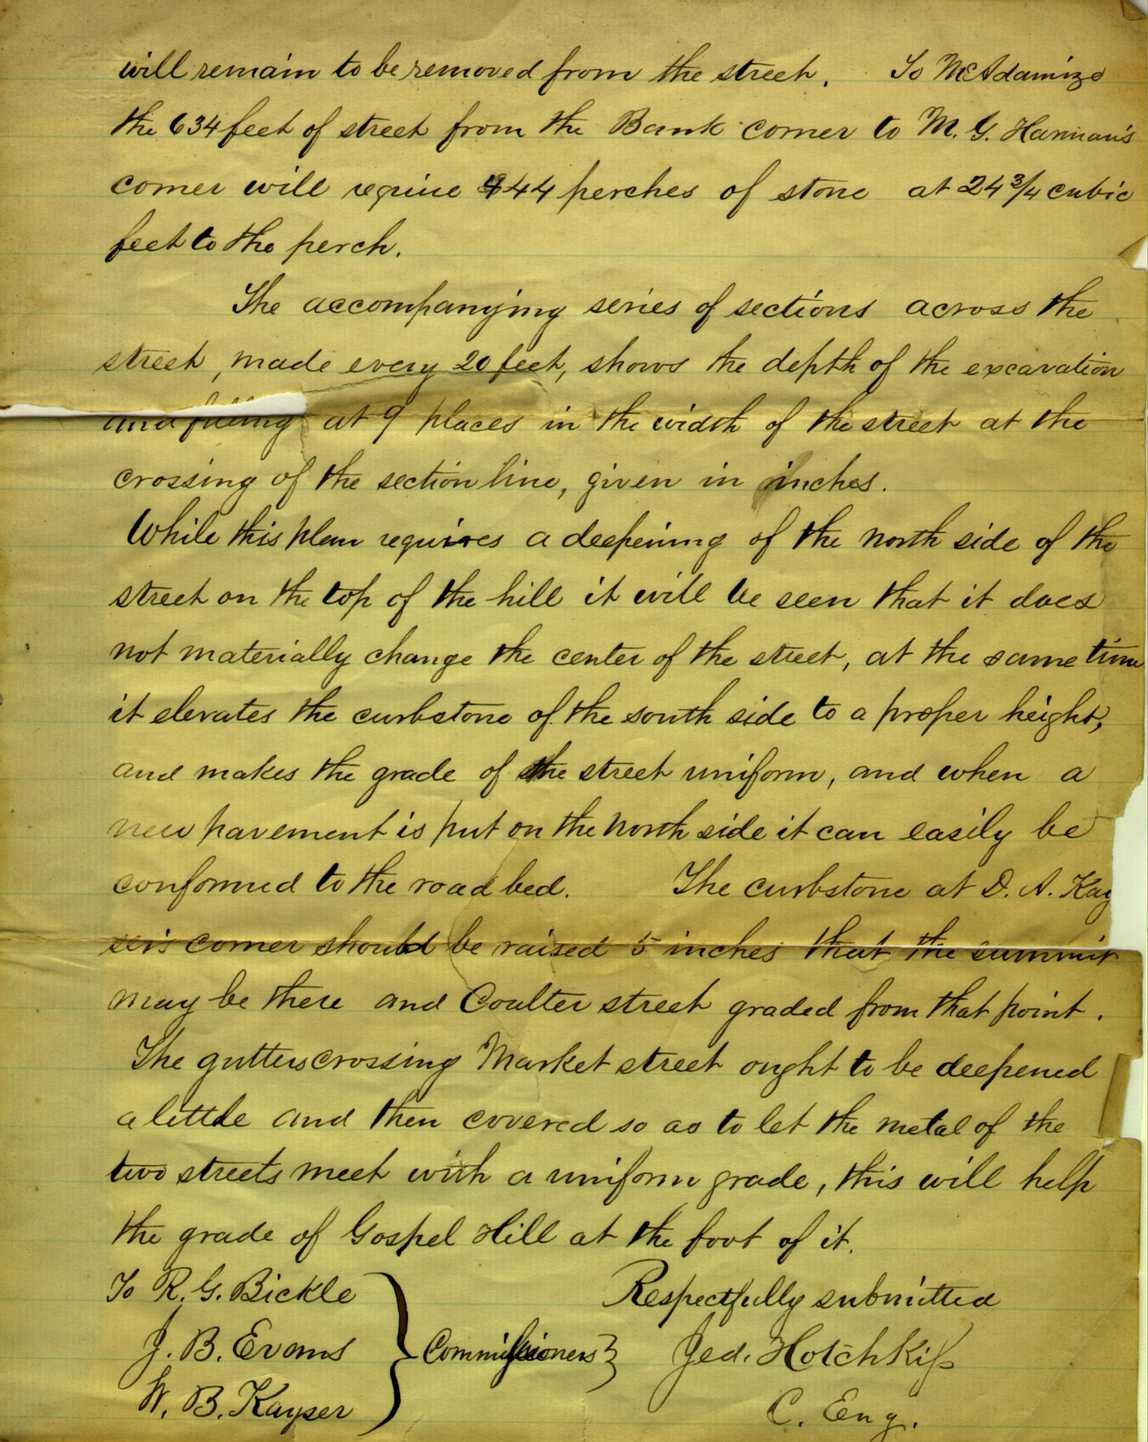 will remain to be removed from the street. To McAdamize
the 634 feet of street from the Bank corner to M. G. Harman's
corner will require 444 perches of stone at 24 3/4 cubic
feet to the perch.
The accompanying series of sections across the
street, made every 20 feet, shows the depth of the excavation
and filling at 9 places in the width of the street at the
crossing of the section line, given in inches.
While this plan requires a deepening of the north side of the
street on the top of the hill it will be seen that it does
not materially change the center of the street, at the same time
it elevates the curbstone of the south side to a proper height,
and makes the grade of the street uniform, and when a
new pavement is put on the north side it can easily be
conformed to the road bed. The curbstone at D. A. Kay
ser's corner should be raised 5 inches that the summit
may be there and Coulter street graded from that point.
The gutters crossing Market street ought to be deepened
a little and then covered so as to let the metal of the
two streets meet with a uniform grade, this will help
the grade of Gospel Hill at the foot of it.
To R. G. Bickle Respectfully submitted
J. B. Evans } Commissioners } Jed. Hotchkiss
W. B. Kayser C. Eng.